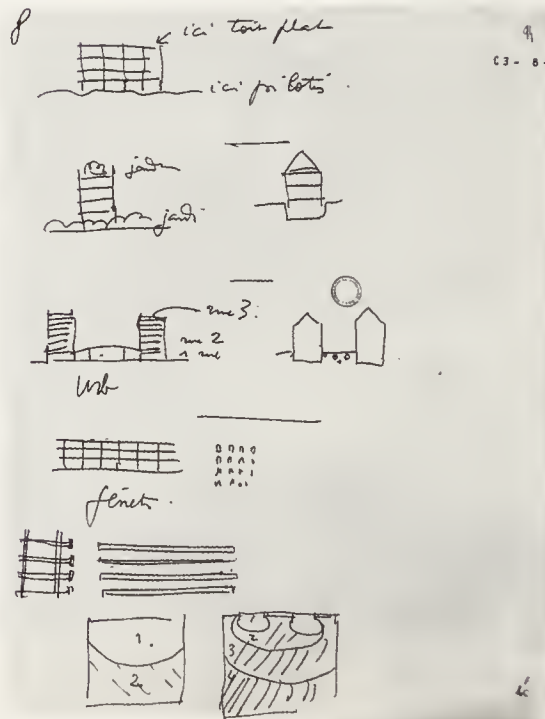 8
ici toit plat
C3-8-
ici pilotis.
jardin
jardi
rue 3:
rue 2
1 rue
Urb
fenêts.
1.
2
2
3
4